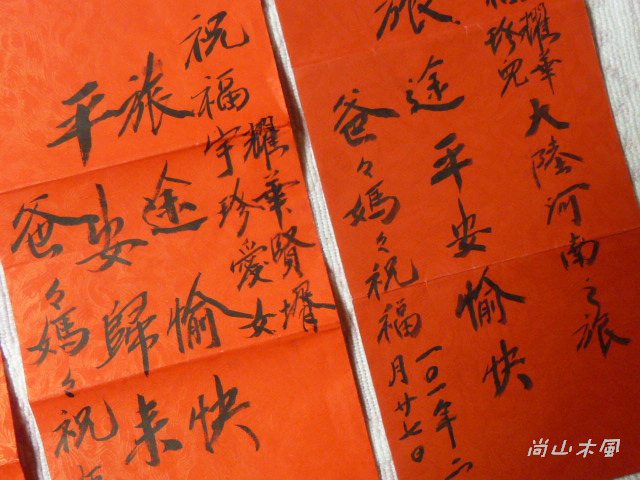 耀華
珍兒
大陸河南之旅
旅途平安愉快
爸々媽々祝福
一〇一年二
月廿七日
祝福
耀華賢壻
宇珍愛女
旅途愉快
平安歸來
爸々媽々祝
尚山木風